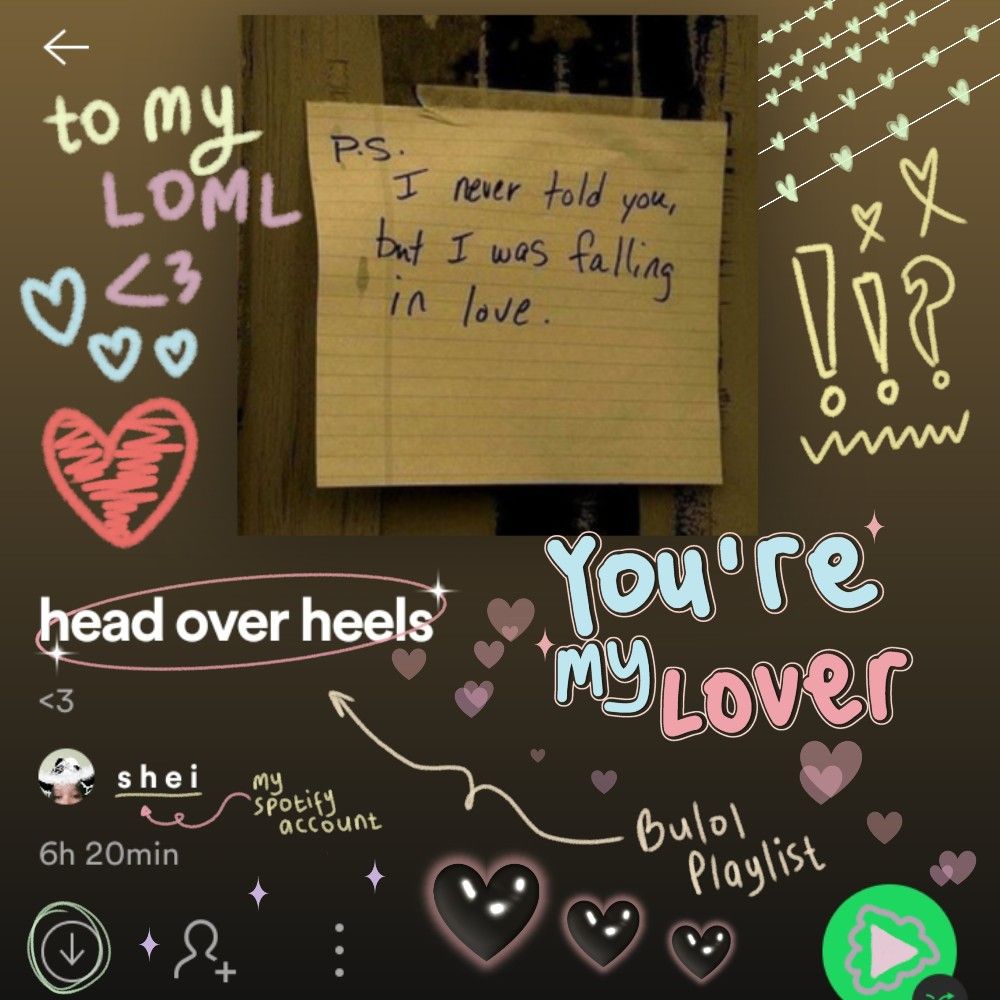 to my
LOML
<3
P.S.
I never told you,
but I was falling
in love.
!!?
You're
my Lover
head over heels
<3
shei
my
spotify
account
6h 20min
Bulol
Playlist